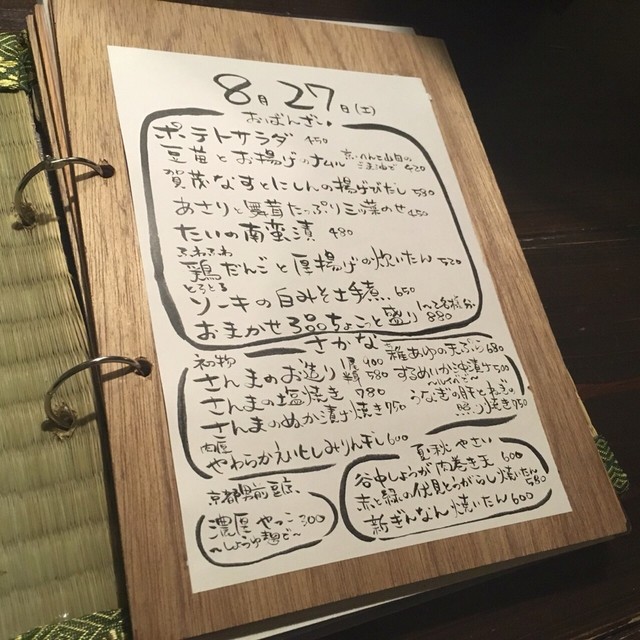 8月27日(土)
おばんざい
ポテトサラダ 450
豆苗とお揚げのナムル 420
賀茂なすとにしんの揚げびたし 580
あさりと舞茸たっぷり三つ葉のせ 450
たいの南蛮漬 480
ふわふわ
鶏だんごと厚揚げの炊いたん 520
とろとろ
ソーキの白みそ土手煮 650
おまかせ3品ちょこっと盛り 880
さかな
初物
さんまのお造り 580
稚あゆの天ぷら 680
さんまの塩焼き 780
するめいか沖漬け 500
さんまのぬか漬け焼き 750
うなぎの肝とねぎの
照り焼き 750
やわらかえいひれみりん干し 600
夏秋やさい
谷中しょうが肉巻き 600
赤と緑の伏見とうがらし焼いたん 580
新ぎんなん焼いたん 600
京都男前豆腐
濃厚やっこ 300